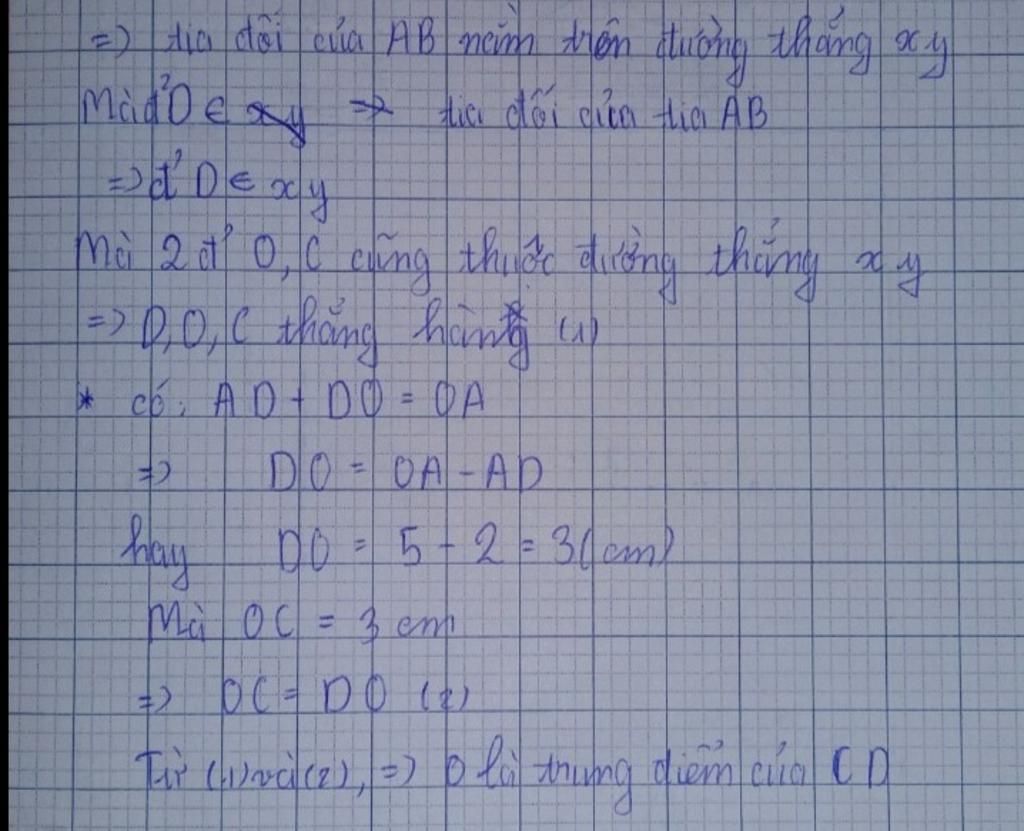 => tia đối của AB nằm trên đường thẳng xy
Mà đ' D ∈ xy => tia đối của tia AB
=> đ' D ∈ xy
Mà 2 đ' O, C cũng thuộc đường thẳng xy
=> D, O, C thẳng hàng (1)
* có: AD + DO = OA
=> DO = OA - AD
hay DO = 5 - 2 = 3(cm)
Mà OC = 3 cm
=> OC = DO (2)
Từ (1) và (2), => O là trung điểm của CD